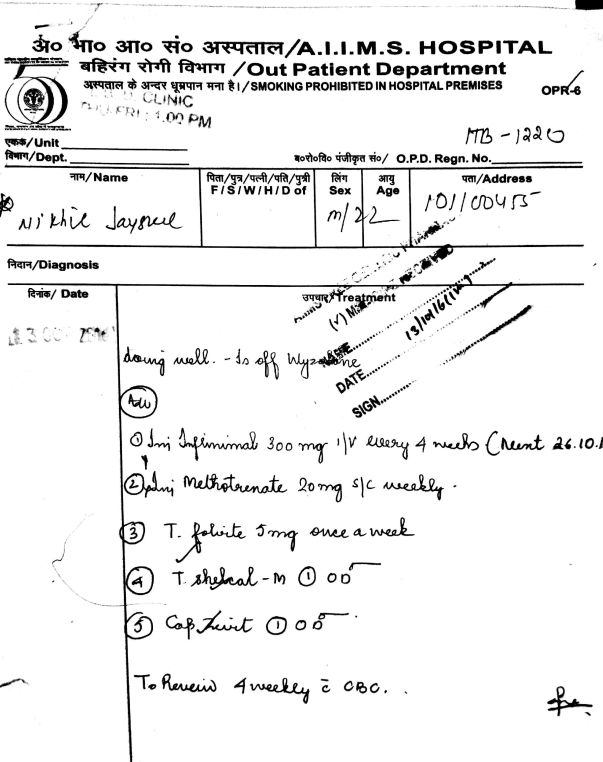 अ० भा० आ० सं० अस्पताल/A.I.I.M.S. HOSPITAL
बहिरंग रोगी विभाग /Out Patient Department
अस्पताल के अन्दर धूम्रपान मना है।/SMOKING PROHIBITED IN HOSPITAL PREMISES
OPR-6
CLINIC
FRI: 1.00 PM
MB-1220
एकक/Unit
विभाग/Dept.
ब०रो०वि० पंजीकृत सं०/ O.P.D. Regn. No.
नाम/Name पिता/पुत्र/पत्नी/पति/पुत्री लिंग आयु पता/Address
F/S/W/H/D of Sex Age
Nikhil m/22 101/00455
निदान/Diagnosis
दिनांक/ Date उपचार/Treatment
(V) RECEIVED
NAME
DATE 13/10/16
SIGN
doing well. - Is off Wyzolone
Adv
① Inj Infiximab 300 mg I/V every 4 weeks (Next 26.10.1
② Inj Methotrexate 20mg S/C weekly.
③ T. folvite 5mg once a week
④ T. shelcal-M ① OD
⑤ Cap Zevit ① OD
To Review 4 weekly c̄ CBC.